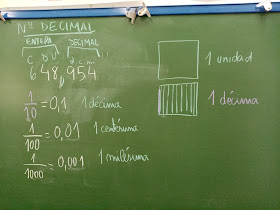 Nº DECIMAL
ENTERA DECIMAL
C D U d c m
648,954
1/10 = 0,1 1 décima
1/100 = 0,01 1 centésima
1/1000 = 0,001 1 milésima
1 unidad
1 décima